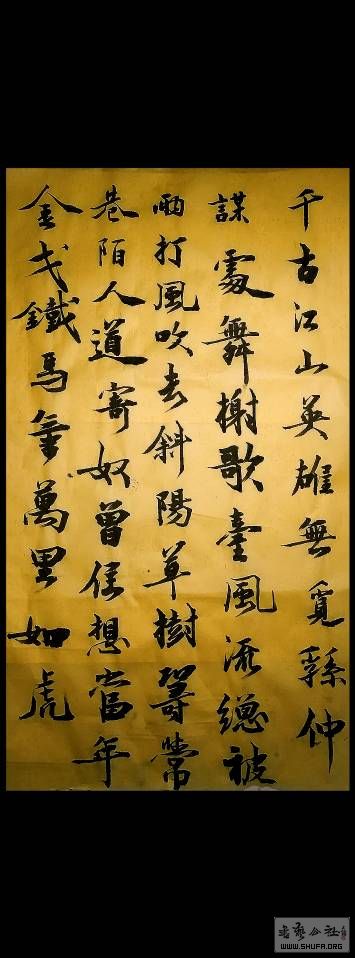 千古江山英雄無覓孫仲
謀處舞榭歌臺風流總被
雨打風吹去斜陽草樹尋常
巷陌人道寄奴曾住想當年
金戈鐵馬氣萬里如虎
書藝公社
WWW.SHUFA.ORG